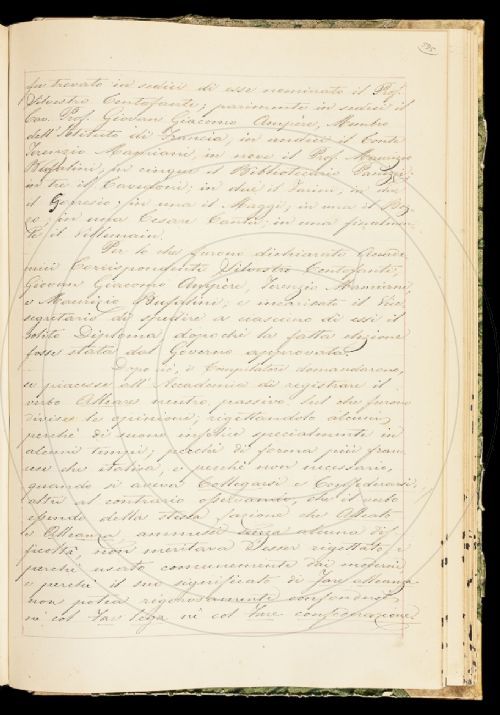 fu trovato in sedici di esse nominato il Prof.
Silvestro Centofanti; parimente in sedici il
Cav. Prof. Giovan Giacomo Ampère, Membro
dell'Istituto di Francia, in undici il Conte
Terenzio Mamiani, in nove il Prof. Maurizio
Bufalini, in cinque il Bibliotecario Panizzi;
in tre il Cavedoni; in due il in due
il in una il Maggi; in una il
in una Cesare Cantù; in una finalmen-
te il Villemain.
Per lo che furono dichiarati Accade-
mici Corrispondenti Silvestro Centofanti,
Giovan Giacomo Ampère, Terenzio Mamiani,
e Maurizio Bufalini; e incaricato il Vice
segretario di spedire a ciascuno di essi il
solito Diploma, dopochè la fatta elezione
fosse stata dal Governo approvata.
Dopo ciò, i Compilatori domandarono,
se piacesse all'Accademia di registrare il
verbo Alleare neutro passivo. Sul che furono
divise le opinioni; rigettandolo alcuni,
perchè di suono infelice specialmente in
alcuni tempi; perchè di forma più fran-
cese che italica, e perchè non necessario,
quando si aveva Collegarsi e Confederarsi;
altri al contrario osservando, che il verbo
essendo della stessa fazione che Alleato
e Alleanza, ammessi senza alcuna dif-
ficoltà, non meritava d'esser rigettato, e
perchè usato comunemente dai moderni
e perchè il suo significato di Fare alleanza
non potea rigorosamente confondersi
nè col Far lega nè col Fare confederazione.